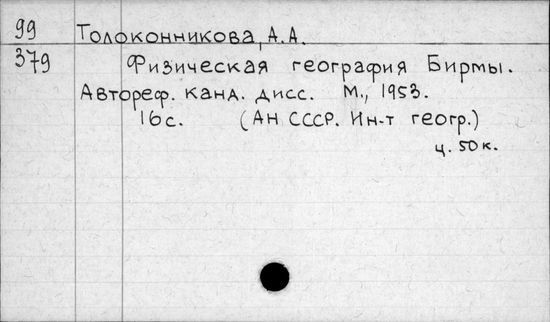 99 Толоконникова, А.А.
379 Физическая география Бирмы.
Автореф. канд. дисс. М., 1953.
16с. (АН СССР. Ин-т геогр.)
ц. 50 к.